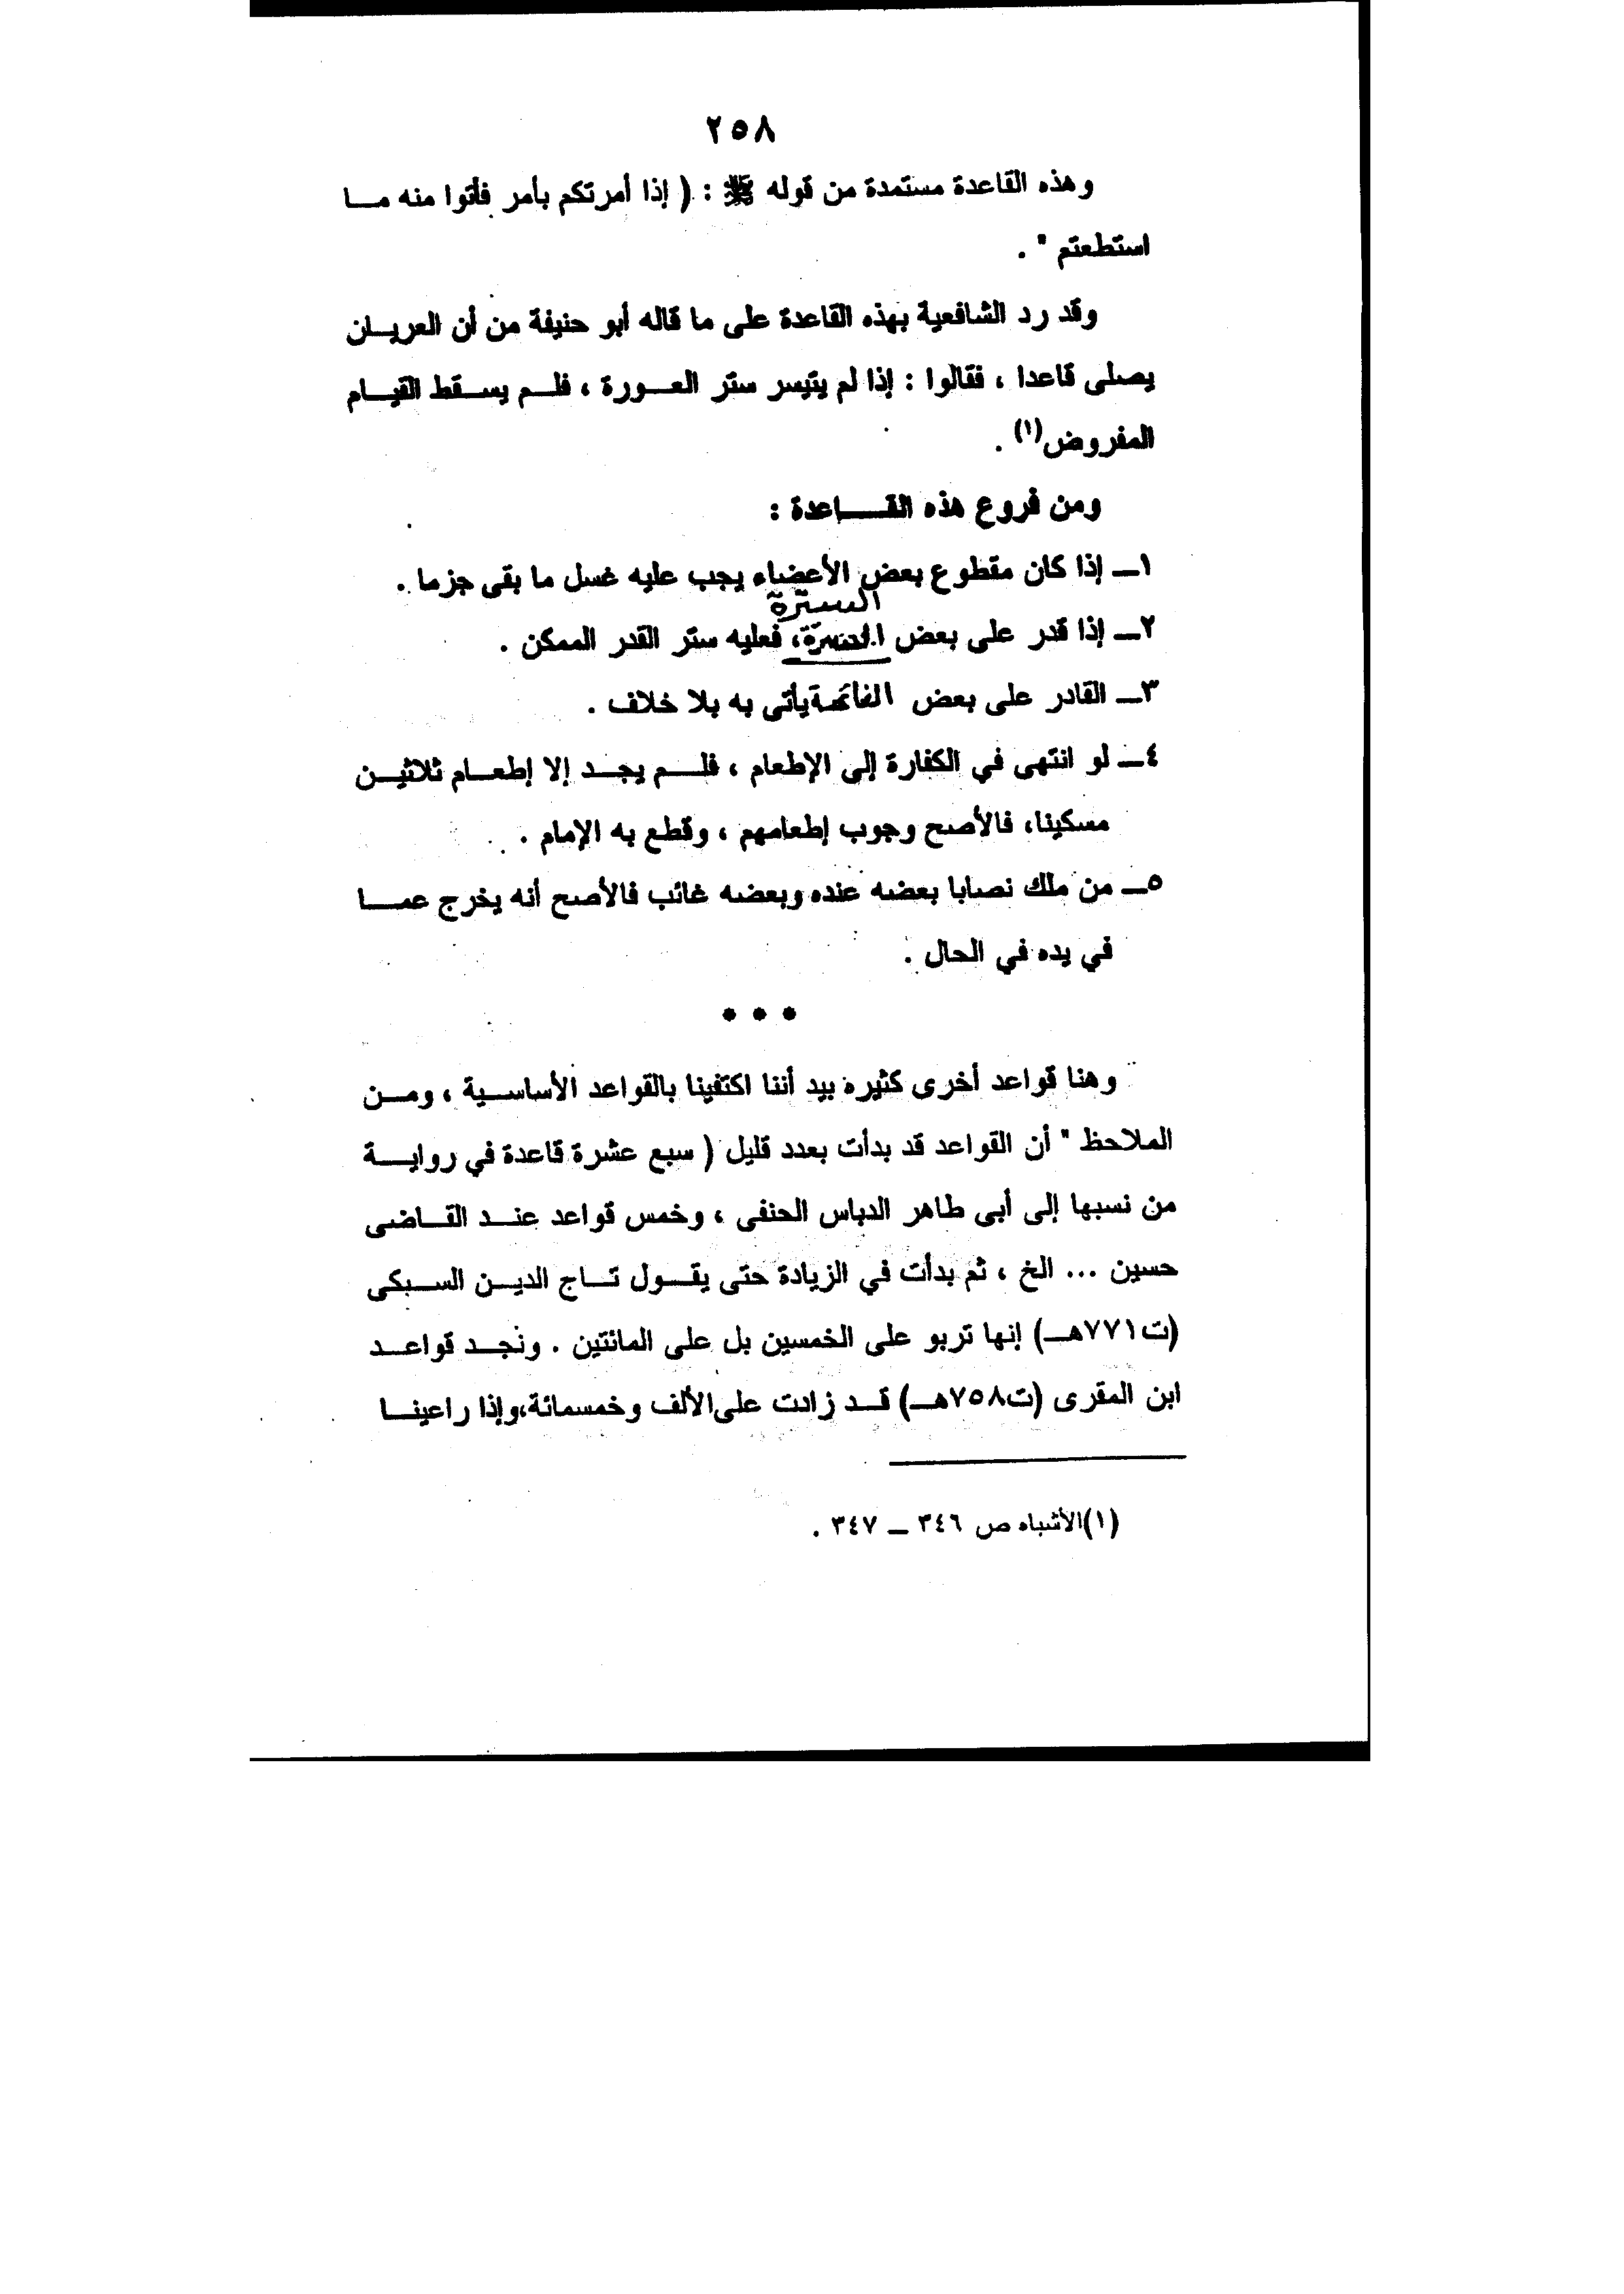 ٢٥٨
وهذه القاعدة مستمدة من قوله ﷺ : ( إذا أمرتكم بأمر فأتوا منه مـــا
استطعتم " .
وقد رد الشافعية بهذه القاعدة على ما قاله أبو حنيفة من أن العريـــان
يصلى قاعدا ، فقالوا : إذا لم يتيسر ستر العـــورة ، فلـــم يســـقط القيـــام
المفروض(١) .
ومن فروع هذه القـــــاعدة :
١ــ إذا كان مقطوع بعض الأعضاء يجب عليه غسل ما بقى جزما .
السترة
٢ــ إذا قدر على بعض ، فعليه ستر القدر الممكن .
٣ــ القادر على بعض الفاتحة يأتى به بلا خلاف .
٤ــ لو انتهى في الكفارة إلى الإطعام ، فلـــم يجـــد إلا إطعـــام ثلاثيـــن
مسكينا، فالأصح وجوب إطعامهم ، وقطع به الإمام .
٥ــ من ملك نصابا بعضه عنده وبعضه غائب فالأصح أنه يخرج عمـــا
في يده في الحال .
* * *
وهنا قواعد أخرى كثيره بيد أننا اكتفينا بالقواعد الأساســـية ، ومـــن
الملاحظ " أن القواعد قد بدأت بعدد قليل ( سبع عشرة قاعدة في روايـــة
من نسبها إلى أبى طاهر الدباس الحنفى ، وخمس قواعد عنـــد القـــاضى
حسين ... الخ ، ثم بدأت في الزيادة حتى يقـــول تـــاج الديـــن الســـبكى
(ت٧٧١هـــ) إنها تربو على الخمسين بل على المائتين . ونجـــد قواعـــد
ابن المقرى (ت٧٥٨هـــ) قـــد زادت على الألف وخمسمائة،وإذا راعينـــا
(١)الأشباه ص ٣٤٦ ــ ٣٤٧ .